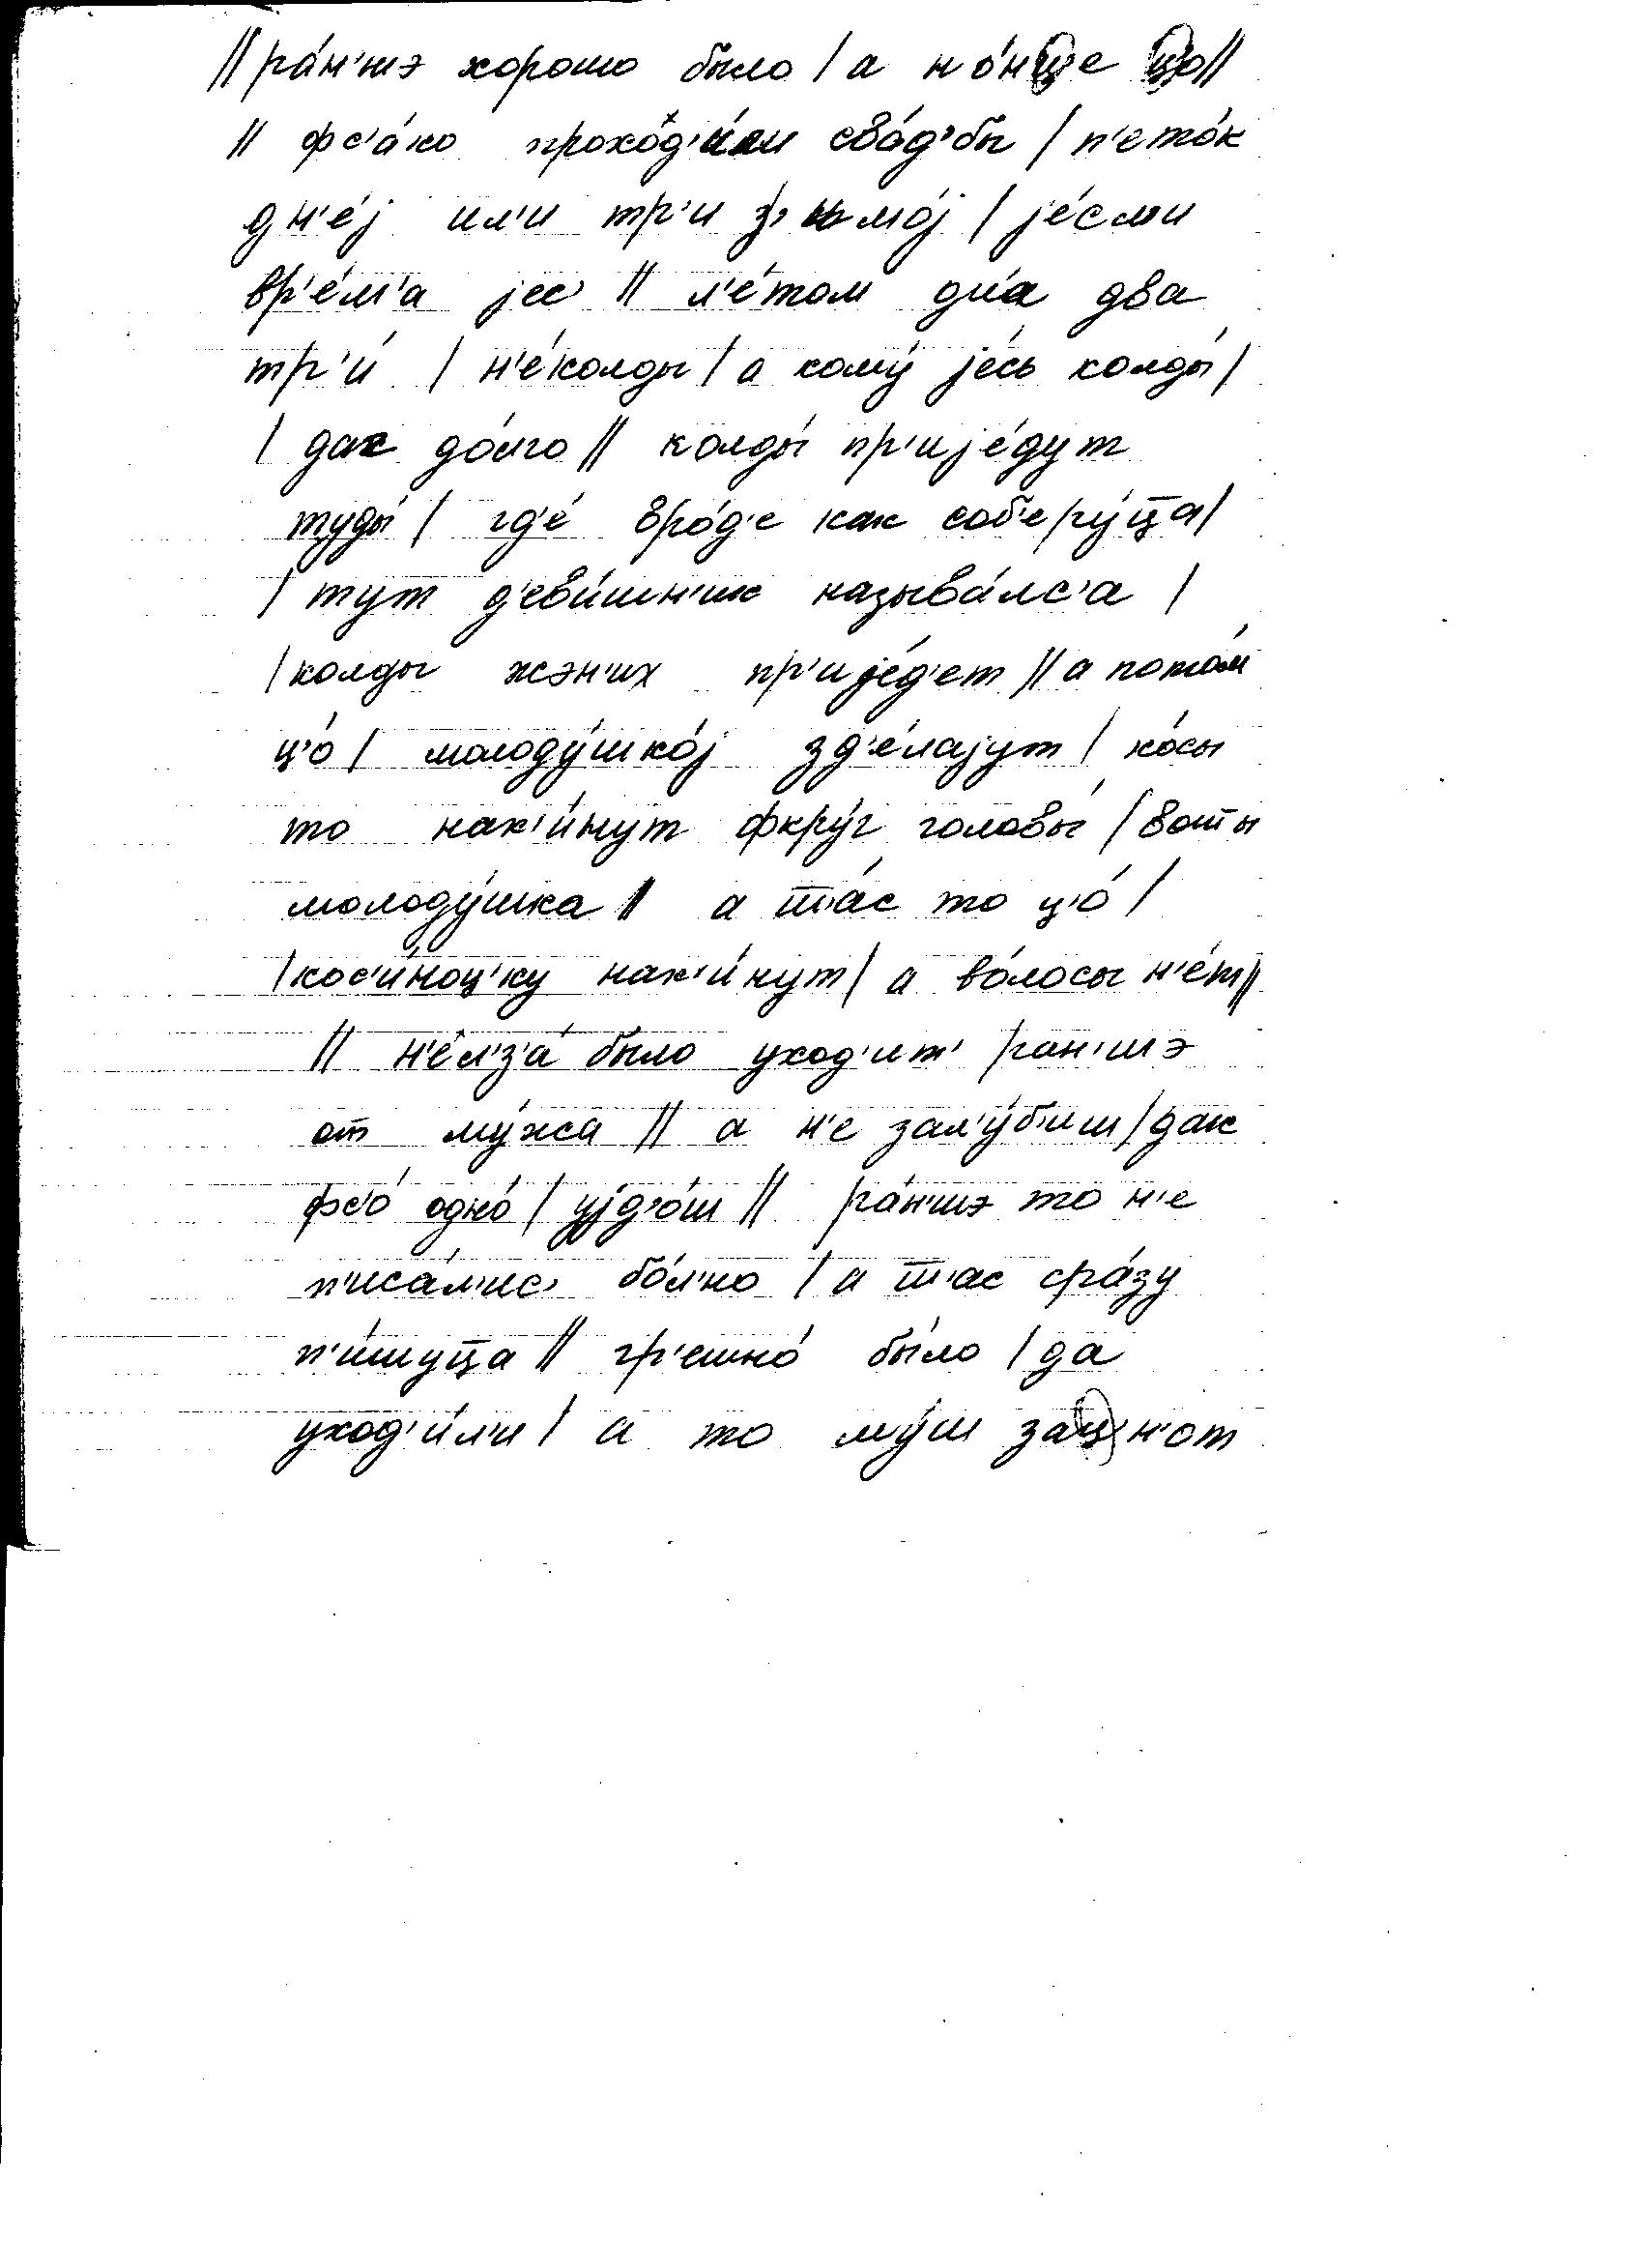 // ра́н'шэ хорошо было / а но́нце ц'о //
// фс'а́ко проход'и́ли сва́д'бы / п'ето́к
дн'е́j ил'и тр'и з'имо́j / jе́сли
вр'е́м'а jес' // л'е́том дн'а два
тр'и́ / н'е́колды / а кому́ jе́сь колды́ /
/ дак до́лго // колды́ пр'иjе́дут
туды́ / гд'е́ вро́д'е как соб'еру́ца /
/ тут д'еви́шн'ик называ́лс'а /
/ колды жэн'их пр'иjе́д'ет // а пото́м
ц'о́ / молоду́шко́j зд'е́лаjут / ко́сы
то нак'и́нут фкру́г головы́ / воты
молоду́шка // а т'а́с то ц'о́ /
/ кос'и́ноц'ку нак'и́нут / а во́лосы н'е́т //
// н'ел'з'а́ было уход'ит' ран'шэ
от му́жа // а н'е зал'у́б'иш / дак
фс'о́ одно́ / уjд'о́ш // ра́н'шэ то н'е
п'иса́л'ис' бо́л'но / а т'ас сра́зу
п'и́шуца // гр'ешно́ бы́ло / да
уход'и́л'и / а то му́ш зац'н'от